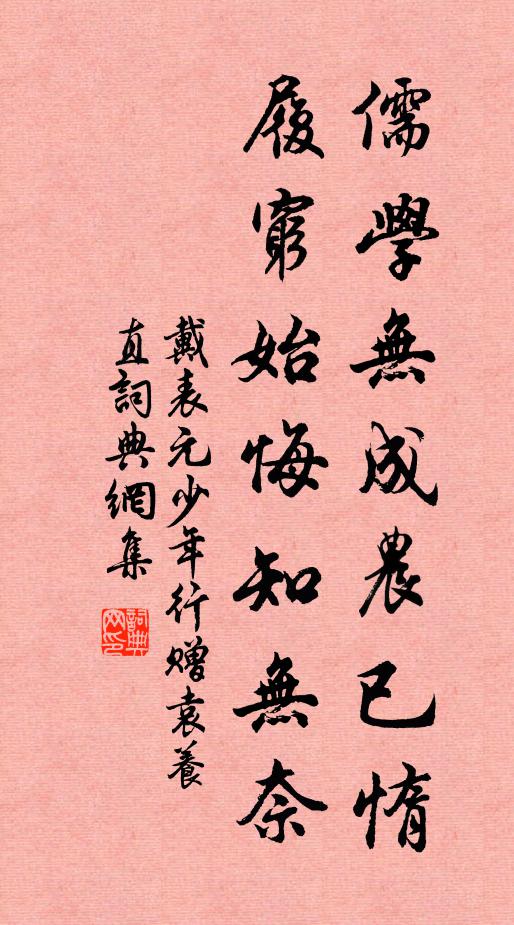 儒學無成農已惰
履窮始悔知無奈
戴表元少年行贈袁養
直詞典網集
詞典
網印